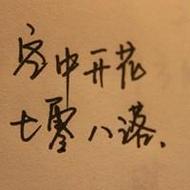 空中开花
七零八落.